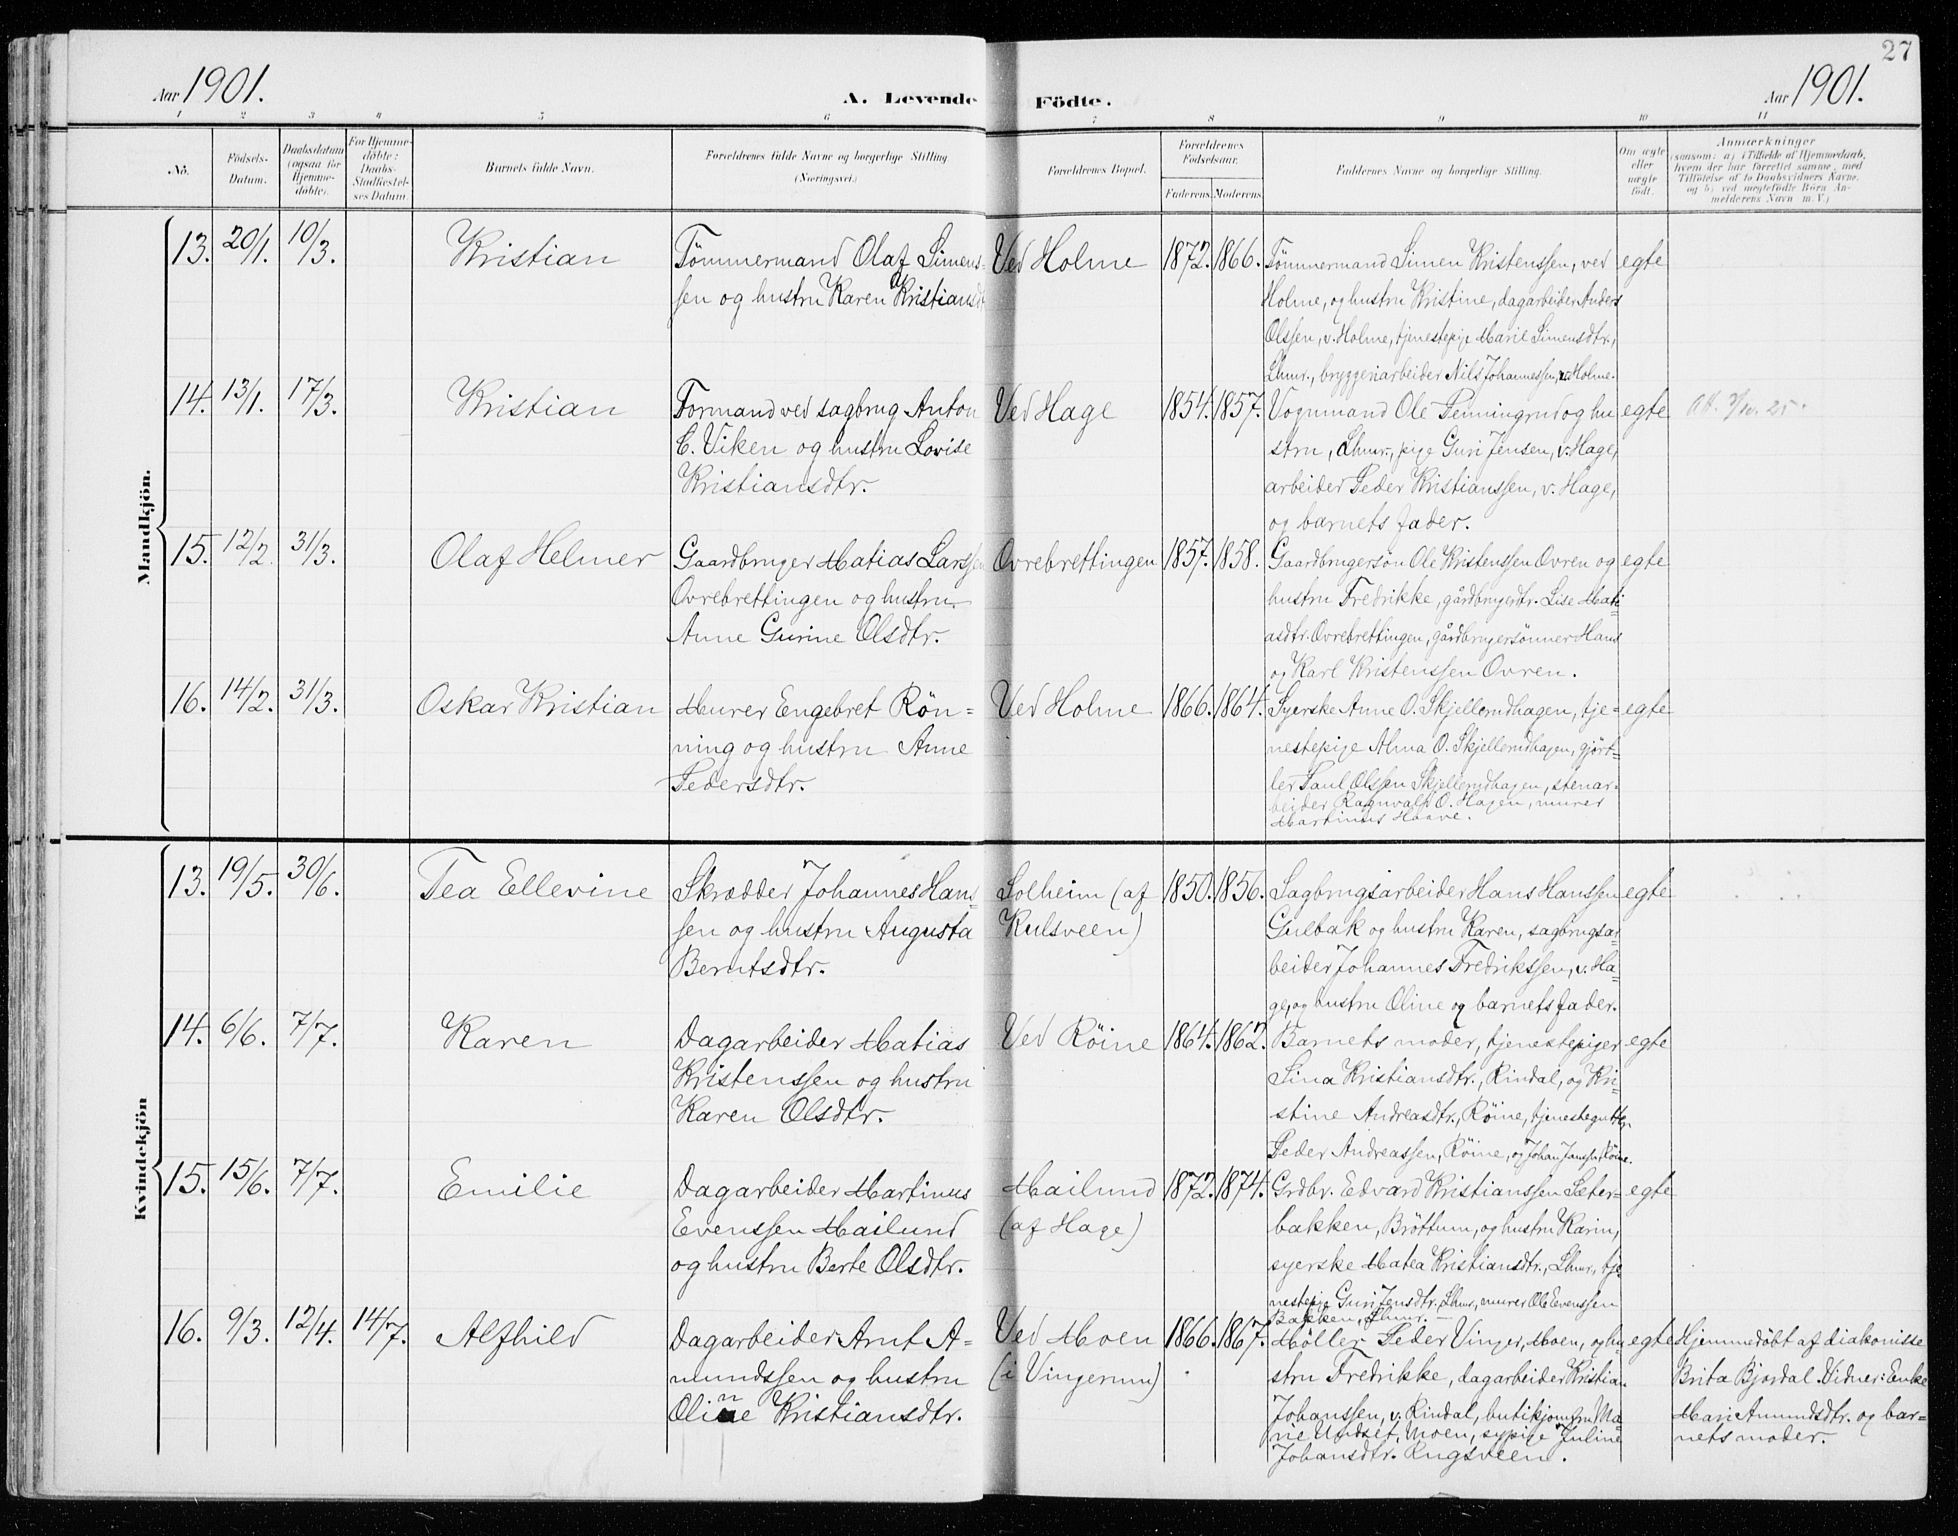 27
Aar 1901.
A. Levende Födte.
Aar 1901.
1 2 3 4 5 6 7 8 9 10 11
No.
Födsels-
Datum.
Daabsdatum
(ogsaa for
Hjemme-
døbte).
For Hjemme-
döbte:
Daabs-
Stadfæstel-
ses Datum.
Barnets fulde Navn.
Forældrenes fulde Navne og borgerlige Stilling
(Næringsvei.)
Forældrenes Bopæl.
Forældrenes
Födselsaar.
Faderens. Moderens.
Faddernes Navne og borgerlige Stilling.
Om ægte
eller
uægte
födt.
Anmærkninger
(saasom: a) i Tilfælde af Hjemmedaab,
hvem der har forrettet samme, med
Tilföielse af to Daabsvidners Navne,
og b) ved uægtefödte Börn An-
melderens Navn m. V.)
Mandkjön.
13. 20/1. 10/3. Kristian
Tömmermand Olaf Simens-
sen og hustru Karen Kristiansd
Ved Holme 1872. 1866.
Tömmermand Simen Kristenssen, ved
Holme, og hustru Kristine, dagarbeider Anders
Olssen, v. Holme, tjenestepige Marie Simensdtr.,
Lhmr., bryggeriarbeider Nils Johannessen, v. Holme.
egte
14. 13/1. 17/3. Kristian
Formand ved sagbrug Anton
C. Viken og hustru Lovise
Kristiansdtr.
Ved Hage 1854. 1857.
Vognmand Ole Penningrud og hu
stru, Lhmr., pige Guri Jensen, v. Hage,
arbeider Peder Kristianssen, v. Hage,
og barnets fader.
egte
15. 12/2. 31/3. Olaf Helmer
Gaardbruger Matias Larssen
Ovrebrettingen og hustru
Anne Gurine Olsdtr.
Ovrebrettingen 1857. 1858.
Gaardbrugersön Ole Kristenssen Ovren og
hustru Fredrikke, gårdbrugerdtr. Lise Mati-
asdtr. Ovrebrettingen, gårdbrugersönner Hans
og Karl Kristenssen Ovren.
egte
16. 14/2. 31/3. Oskar Kristian
Murer Engebret Rön=
ning og hustru Anne
Pedersdtr.
Ved Holme 1866. 1864.
Syerske Anne O. Skjellerudhagen, tje=
nestepige Alma O. Skjellerudhagen, gjört-
ler Paul Olssen Skjellerudhagen, stenar-
beider Ragnvald O. Hagen, murer
Martinus Haave.
egte
Kvindekjön
13. 19/5. 30/6. Tea Ellevine
Skrædder Johannes Hans=
sen og hustru Augusta
Berntsdtr.
Solheim (af
Kulsveen)
1850. 1856.
Sagbrugsarbeider Hans Hanssen
Gulbak og hustru Karen, sagbrugsar-
beider Johannes Fredrikssen, v. Ha=
ge, og hustru Oline og barnets fader.
egte
14. 6/6. 7/7. Karen
Dagarbeider Matias
Kristenssen og hustru
Karen Olsdtr.
Ved Röine 1864. 1862.
Barnets moder, tjenestepiger
Sina Kristiansdtr., Rindal, og Kri-
stine Andreasdtr., Röine, tjenestegutter
Peder Andreassen, Röine, og Johan Janssen, Röine.
egte
15. 15/6. 7/7. Emilie
Dagarbeider Martinus
Evenssen Mailund
og hustru Berte Olsdtr.
Mailund
(af Hage)
1872. 1874.
Grdbr. Edvard Kristianssen Sæter-
bakken, Bröttum, og hustru Karin,
syerske Matea Kristiansdtr., Lhmr., tje-
nestepige Guri Jensdtr. Lhmr., murer Ole Evenssen
Bakken, Lhmr.
egte
16. 9/3. 12/4. 14/7. Alfhild
Dagarbeider Arnt A-
mundssen og hustru
Oline Kristiansdtr.
Ved Moen
(i Vingerum)
1866. 1867.
Möller Peder Vinger, Moen, og hu
stru Fredrikke, dagarbeider Kristian
Johanssen, v. Rindal, butikjomfru Ma-
rie Moen, sypige Juline
Johansdtr. Rugsveen.
egte
Hjemmedöbt af diakonisse
Brita Bjordal. Vidner: Enke
Mari Amundsdtr. og bar=
nets moder.